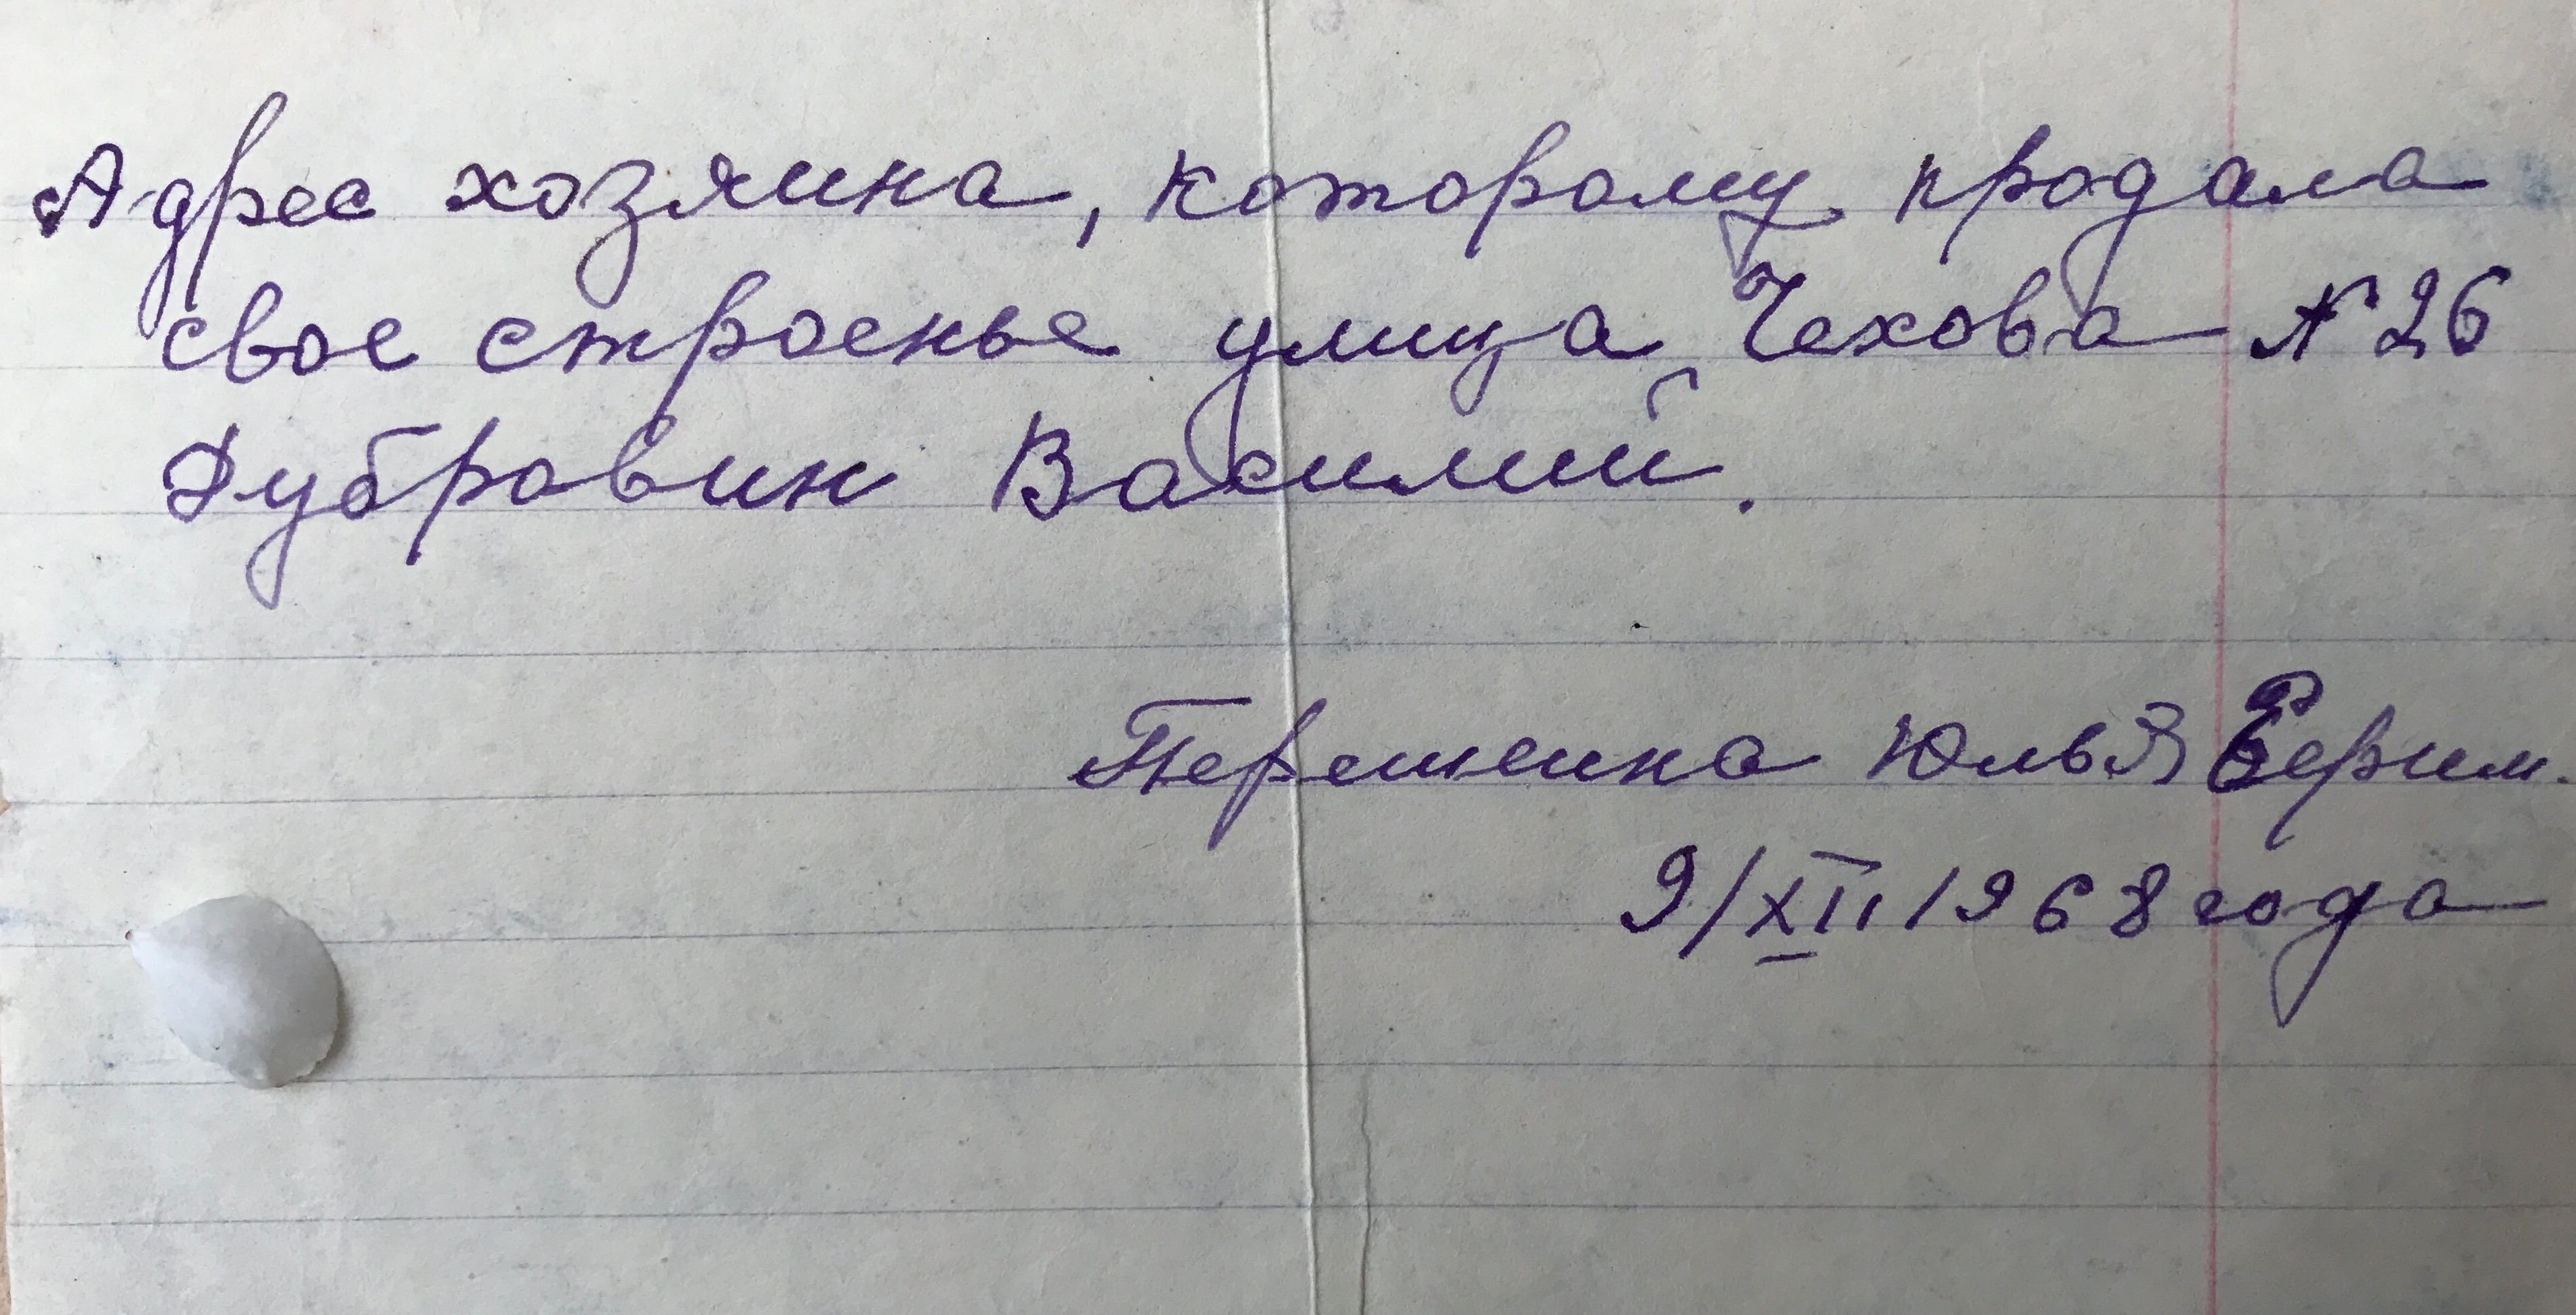 Адрес хозяина, которому продала
свое строенье улица Чехова № 26
Дубровин Василий.
Юлья
9/XII 1968 года